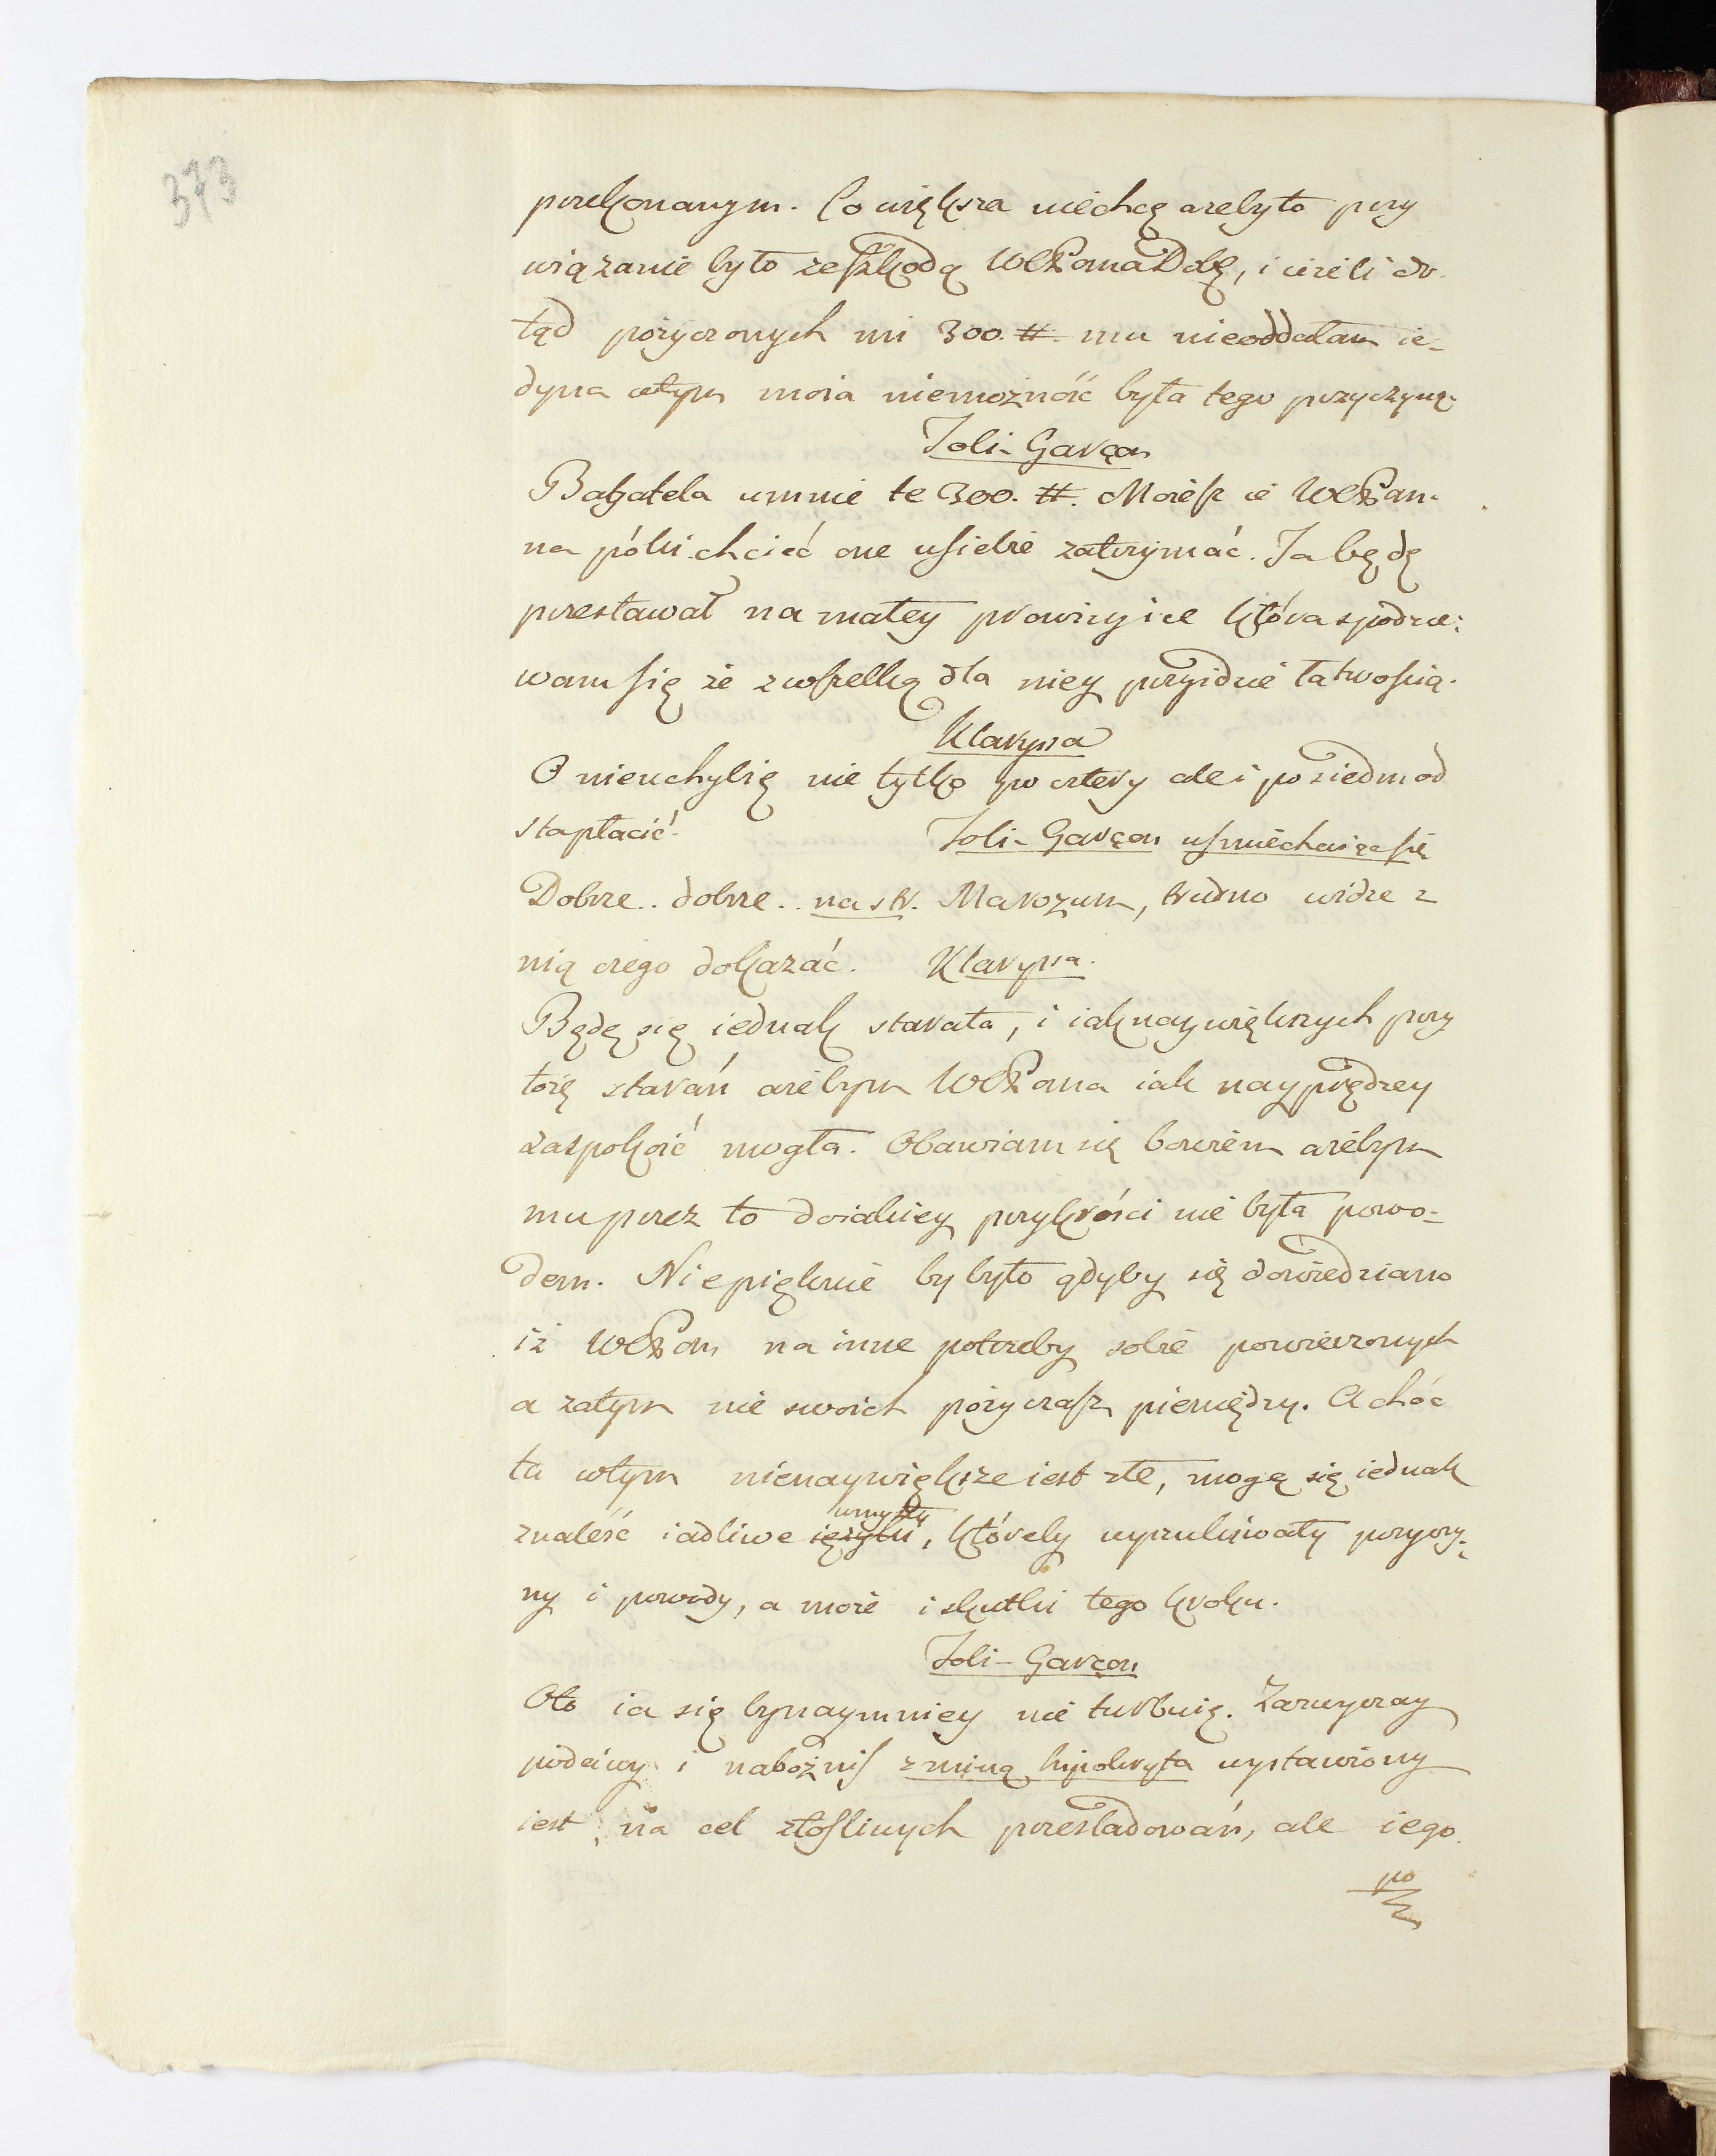 373
przekonanym. Co większa niechcę ażebyto przy
wiązanie było zeszkodą WCPana Dobę, i ieżeli do-
tąd pożyczonych mi 300. #. mu nieoddałam ie-
dyna wtym moia niemożność była tego przyczyną.
Joli-Garçon
Bagatela umnie te 300. #. Możesz ie WCPan-
na póki chcieć one usiebie zatrzymać. Ja będę
przestawał na małey prowizyice która spodzie-
wam się że zwszelką dla niey przyidzie łatwością.
Klaryssa
O nieuchybię nie tylko po cztery ale i po siedm od
sta płacić.
Joli-Garçon uśmiechaiąc się
Dobrze.. dobrze.. na str. Ma rozum, trudno widzę z
nią czego dokazać.
Klaryssa.
Będę się iednak starała, i iak naywiększych przy
łożę starań ażebym WCPana iak nayprędzey
zaspokoić mogła. Obawiam się bowiem ażebym
mu przez to iakiey przykrości nie była powo-
dem. Niepięknie by było gdyby się dowiedziano
iż WCPan na inne potrzeby sobie powierzonych
a zatym nie swoich pożyczasz pieniędzy. A choć
tu wtym nienaywiększe iest złe, mogą się iednak
umysły
znaleść iadliwe ięzyki, któreby wyszukiwały przyczy-
ny i powody, a może i skutki tego kroku.
Joli-Garçon
Oto ia się bynaymniey nie turbuię. Zazwyczay
podciwy i nabożniś z miną hipokryta wystawiony
iest na cel złośliwych prześladowań, ale iego
po